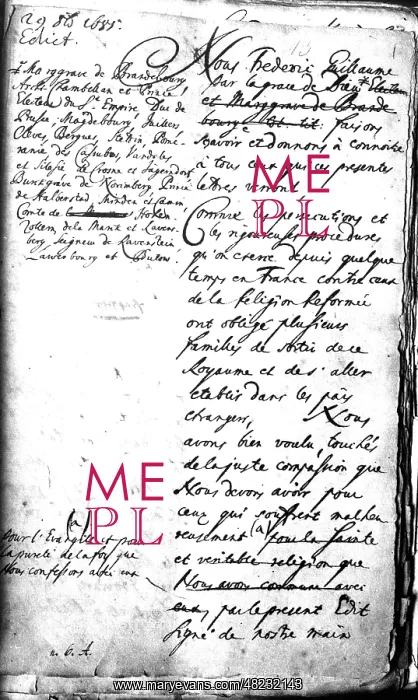 29 8b 1685.
Edict.
Marggrave de Brandebourg
Arch. Cambellan et Prince
Electeur du St. Empire Duc de
Prusse, Magdebourg, Juilliers
Cleves, Bergues, Stettin, Pome-
ranie des Cassubes, Vandales
et Silesie de Crosne et Jagendorf
Burggrave de Noremberg Prince
de Halberstad, Minden et Camin
Comte de Hohen-
zollern de la Mark et Ravens-
berg, Seigneur de Ravenstein
Lawenbourg et Butow.
Nous Frederic Guillaume
par la grace de Dieu Electeur
et Marggrave de Brande
bourg tit. tit. faisons
sçavoir et donnons à connoitre
à tous ceux que ces presentes
lettres verront
Comme les persecutions et
les rigoureuses procedures
qu'on exerce depuis quelque
temps en France contre ceux
de la Religion Reformée
ont obligé plusieurs
familles de sortir de ce
Royaume et de s'aller
etablir dans les païs
etrangers, Nous
avons bien voulu, touchés
de la juste compassion que
Nous devons avoir pour
ceux qui souffrent malheu
reusement (a) pour la sainte
et veritable religion que
Nous avons commune avec
eux, par le present Edit
signé de nostre main
(a)
pour l'Evangile et pour
la pureté de la foy que
Nous confessons avec eux
n. 6. A.
ME
PL
ME
PL
www.maryevans.com/48232143